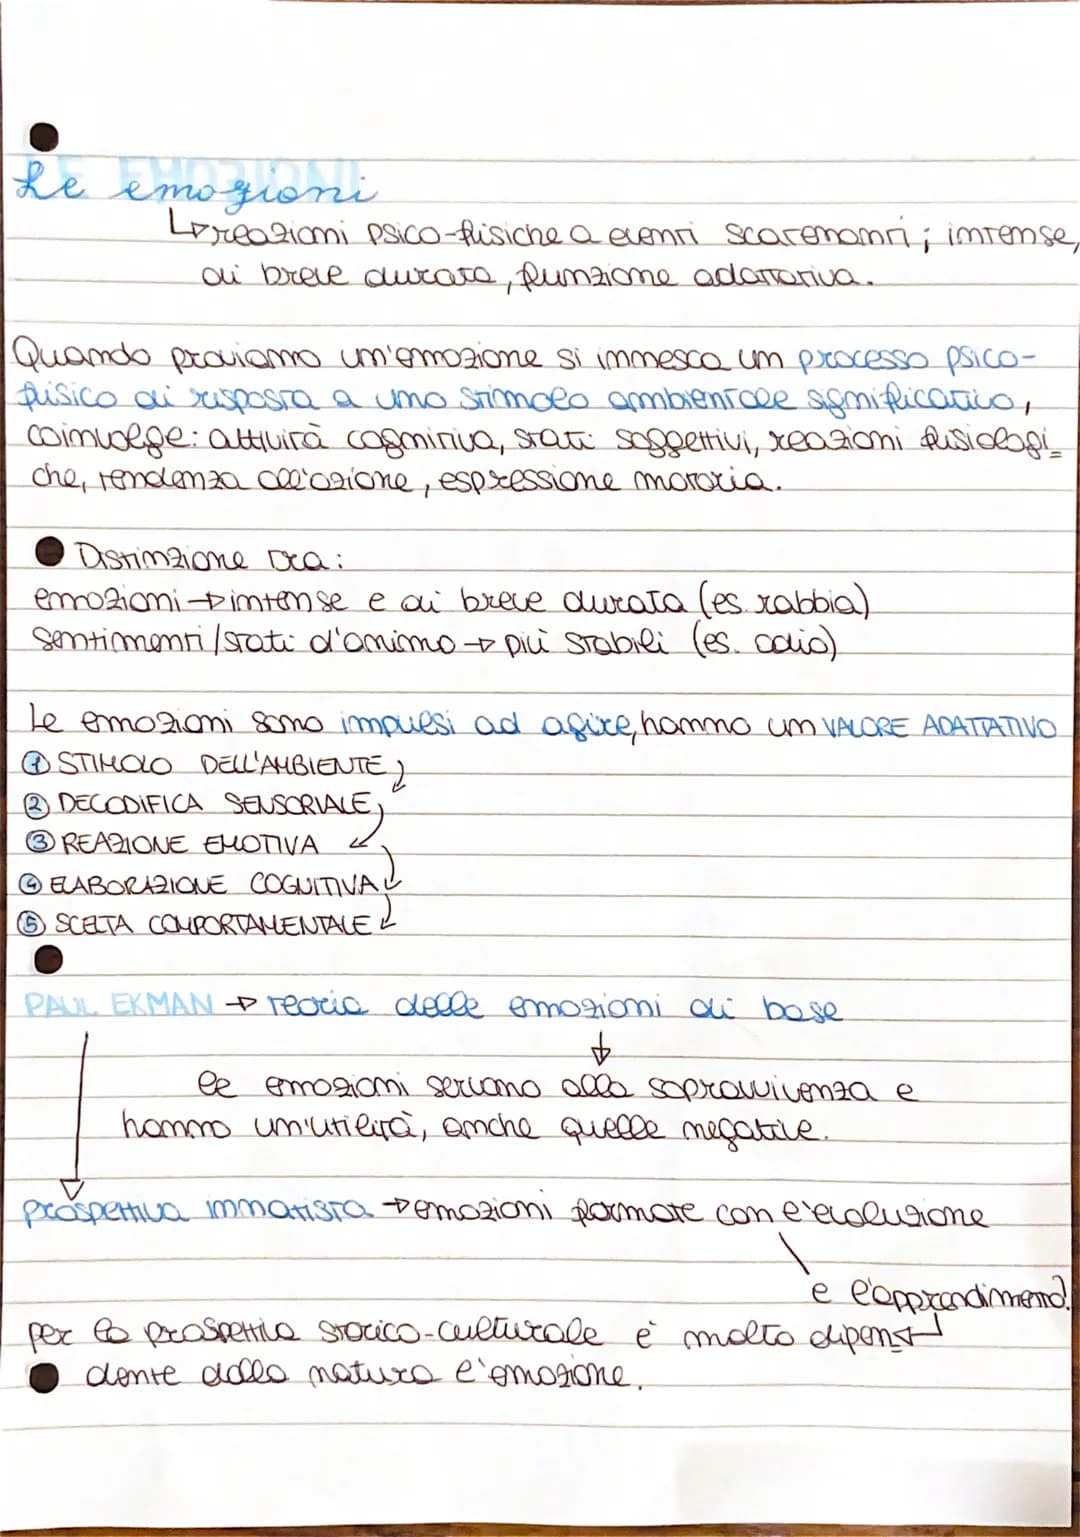 Le emozioni
↳ reazioni psico-fisiche a eventi scatenanti; intense,
di breve durata, funzione adattativa.
Quando proviamo un'emozione si innesca un processo psico-
fisico di risposta a uno stimolo ambientale significativo,
coinvolge: attività cognitiva, stati soggettivi, reazioni fisiologi_
che, tendenza all'azione, espressione motoria.
● Distinzione tra:
emozioni → intense e di breve durata (es. rabbia)
sentimenti/stati d'animo → più stabili (es. odio)
Le emozioni sono impulsi ad agire, hanno un VALORE ADATTATIVO
① STIMOLO DELL'AMBIENTE
② DECODIFICA SENSORIALE
③ REAZIONE EMOTIVA
④ ELABORAZIONE COGNITIVA
⑤ SCELTA COMPORTAMENTALE
PAUL EKMAN → teoria delle emozioni di base
le emozioni servono alla sopravvivenza e
hanno un'utilità, anche quelle negative.
prospettiva innatista → emozioni formate con l'evoluzione
e l'apprendimento.
per la prospettiva storico-culturale è molto dipen_
dente dalla natura l'emozione.